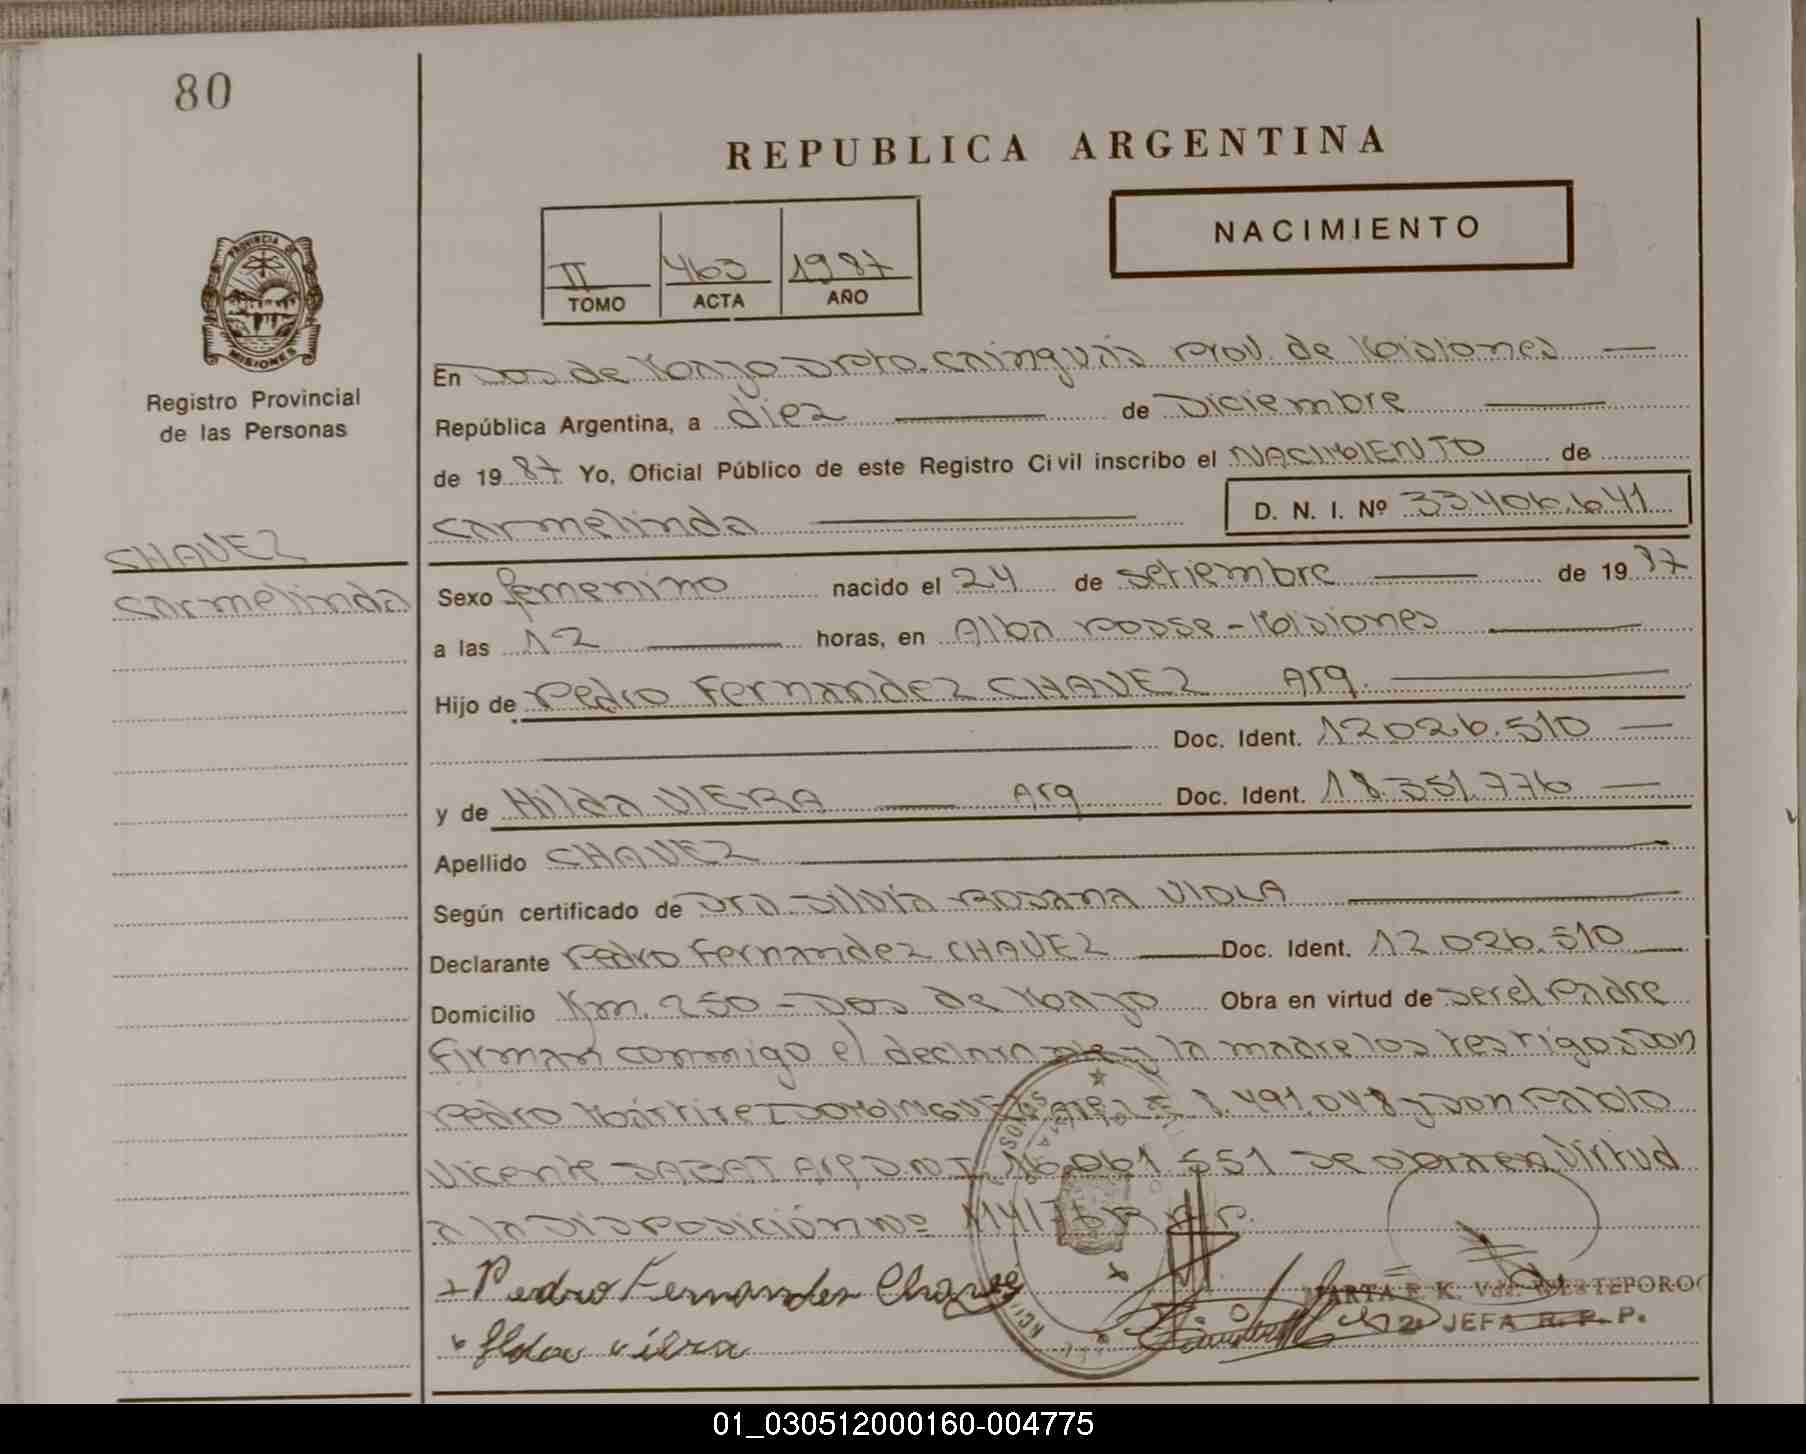 80
REPUBLICA ARGENTINA
NACIMIENTO
II 463 1987
TOMO ACTA AÑO
PROVINCIA DE
MISIONES
Registro Provincial
de las Personas
En Dos de Mayo Dpto. Cainguás Prov. de Misiones
República Argentina, a diez de Diciembre
de 1987 Yo, Oficial Público de este Registro Civil inscribo el NACIMIENTO de
Carmelinda D. N. I. Nº 33406.641
CHAVEZ
Carmelinda
Sexo femenino nacido el 24 de Setiembre de 1987
a las 12 horas, en Alba Posse - Misiones
Hijo de Pedro Fernandez CHAVEZ Arg.
Doc. Ident. 12026.510
y de Hilda VIERA Arg Doc. Ident. 18.351.776
Apellido CHAVEZ
Según certificado de Dra. Silvia Rosana VIOLA
Declarante Pedro Fernandez CHAVEZ Doc. Ident. 12.026.510
Domicilio Km. 250 - Dos de Mayo Obra en virtud de ser el Padre
Firman conmigo el declarante y la madre los testigos Don
Pedro Mártires DOMINGUEZ Arg. L.E 8.491.048 y Don Pablo
Vicente SABAT Arg D.N.I. 16.061.551 Se obra en Virtud
a la Disposición Nº 114/75
Pedro Fernandez Chavez
Ilda viera
MARTA E. K. Vde. WESTEPOROC
JEFA R. P. P.
01_030512000160-004775